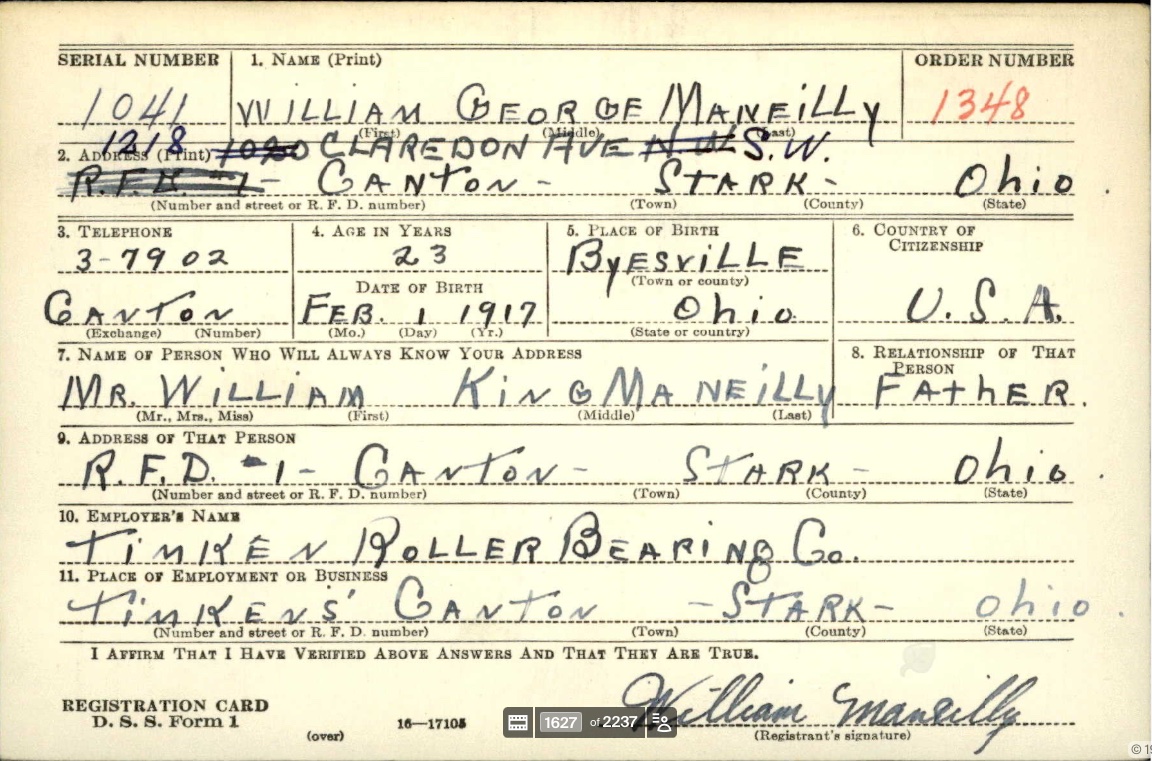 SERIAL NUMBER 1. NAME (Print) ORDER NUMBER
1041 WILLIAM GEORGE MANEILLY 1348
(First) (Middle) (Last)
1218 1020 CLAREDON AVE N.W. S.W.
2. ADDRESS (Print)
R.F.D. #1- CANTON- STARK- Ohio.
(Number and street or R. F. D. number) (Town) (County) (State)
3. TELEPHONE 4. AGE IN YEARS 5. PLACE OF BIRTH 6. COUNTRY OF CITIZENSHIP
3-7902 23 BYESVILLE
(Town or county)
DATE OF BIRTH
CANTON FEB. 1 1917 Ohio U.S.A.
(Exchange) (Number) (Mo.) (Day) (Yr.) (State or country)
7. NAME OF PERSON WHO WILL ALWAYS KNOW YOUR ADDRESS 8. RELATIONSHIP OF THAT PERSON
MR. WILLIAM KING MANEILLY FATHER.
(Mr., Mrs., Miss) (First) (Middle) (Last)
9. ADDRESS OF THAT PERSON
R.F.D. #1- CANTON- STARK- Ohio.
(Number and street or R. F. D. number) (Town) (County) (State)
10. EMPLOYER'S NAME
TIMKEN ROLLER BEARING Co.
11. PLACE OF EMPLOYMENT OR BUSINESS
TIMKENS' CANTON -STARK- Ohio.
(Number and street or R. F. D. number) (Town) (County) (State)
I AFFIRM THAT I HAVE VERIFIED ABOVE ANSWERS AND THAT THEY ARE TRUE.
REGISTRATION CARD
D. S. S. Form 1 16—17105 William Maneilly
(over) (Registrant's signature)
1627 of 2237
©